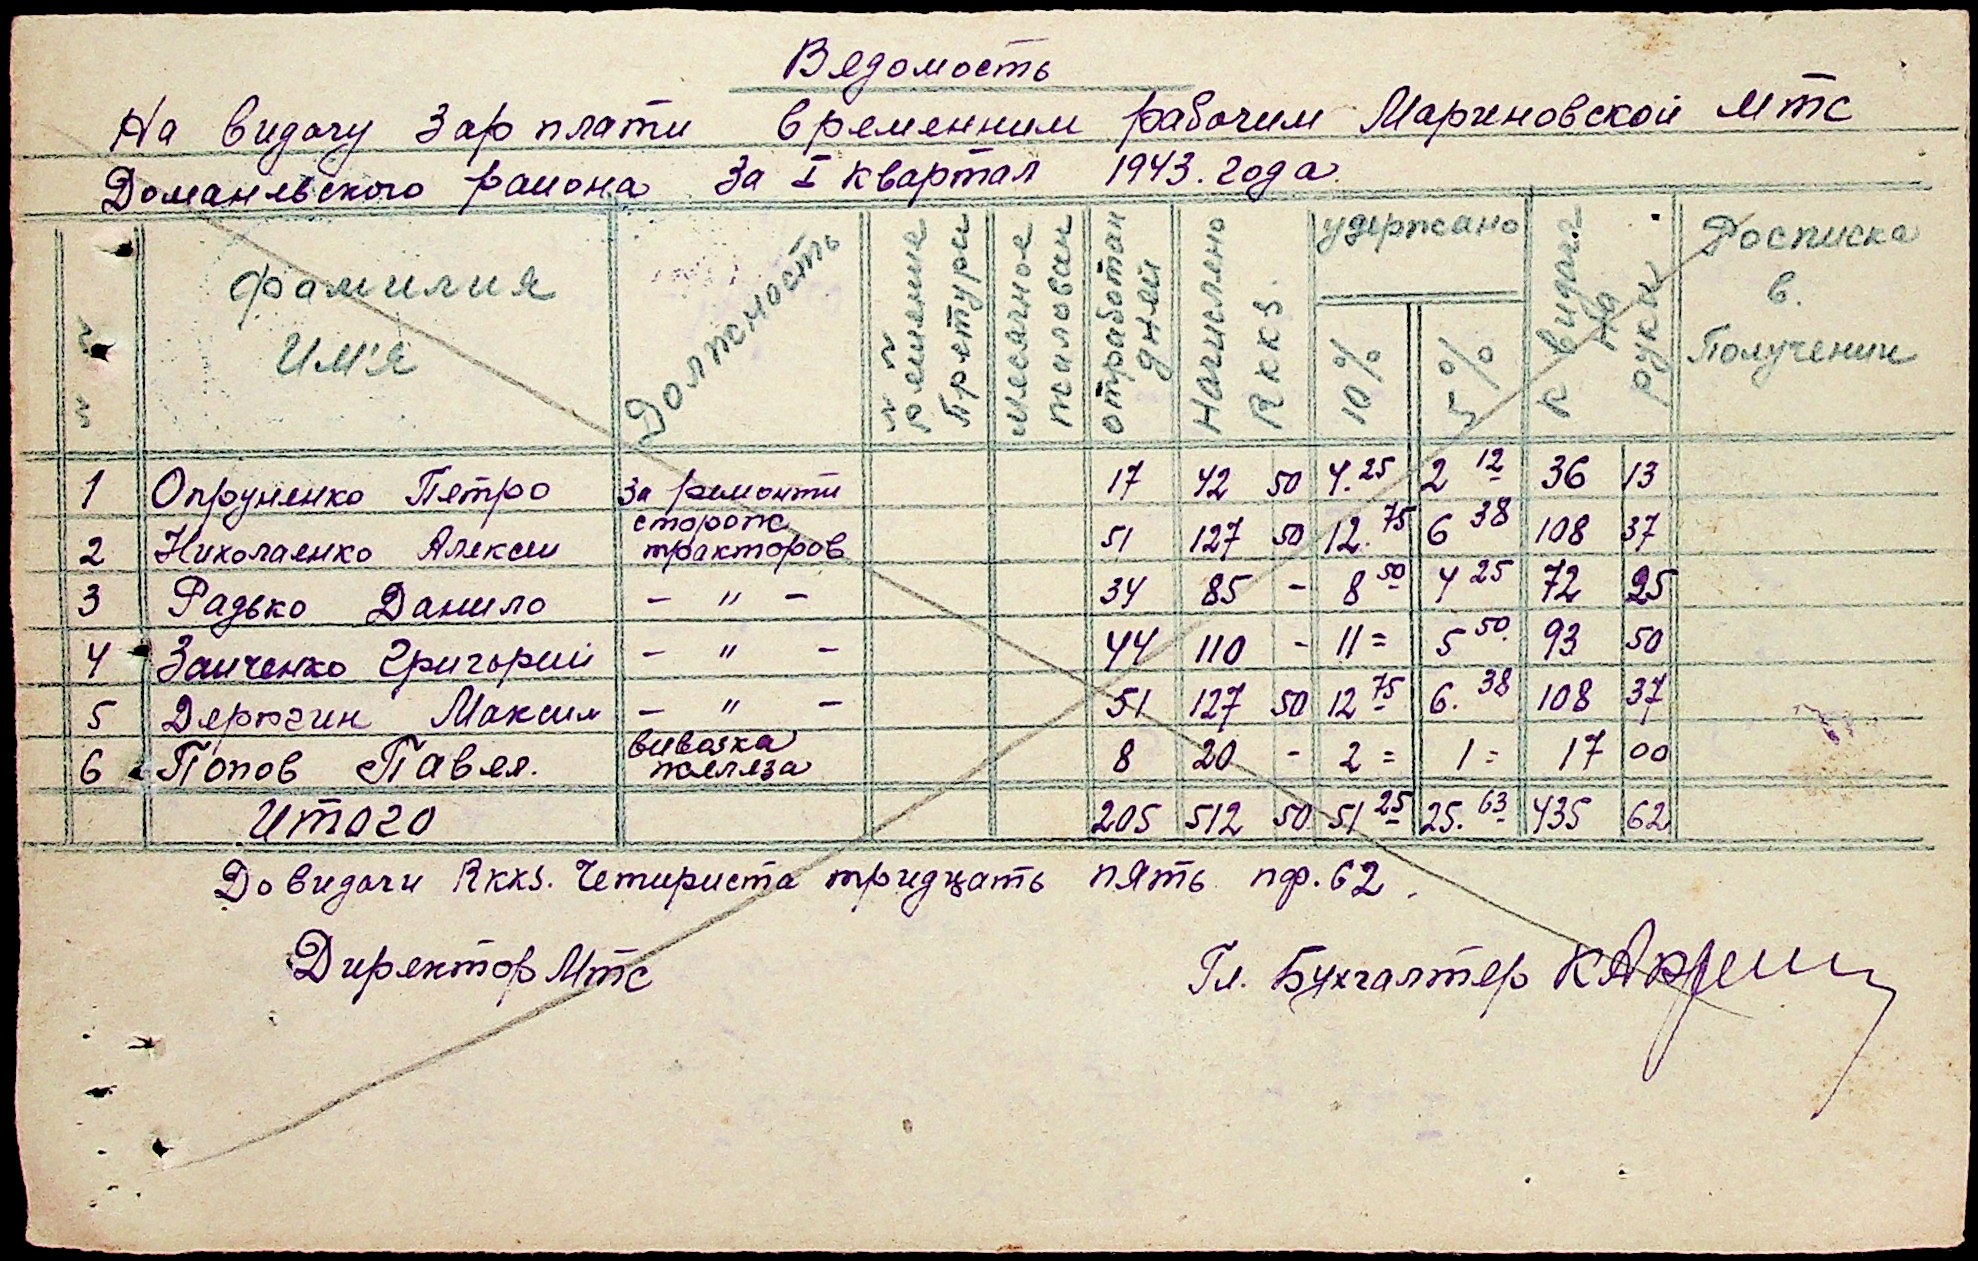 Ведомость
На видачу Зарплати временним рабочим Мариновской МТС
Доманевского района За I квартал 1943. года.
№ № Фамилия Имя Должность №№ Решение Претури Месячное Жалован Отработан дней Начислено Rkks. удержано 10% 5% К видачи На руки Росписка в. Получении
1 Опруненко Петро За ремонти 17 42 50 4.25 2 12 36 13
2 Николаенко Алексеи сторож тракторов 51 127 50 12.75 6 38 108 37
3 Радько Данило – " – 34 85 – 8 50 4 25 72 25
4 Заиченко Григории – " – 44 110 – 11 = 5 50. 93 50
5 Дерюгин Максим – " – 51 127 50 12 75 6. 38 108 37
6 Попов Павел. вивозка железа 8 20 – 2 = 1 = 17 00
Итого 205 512 50 51 25 25. 63 435 62
До видачи Rkks. Четириста тридцать пять пф. 62.
Директор МТС Гл. Бухгалтер